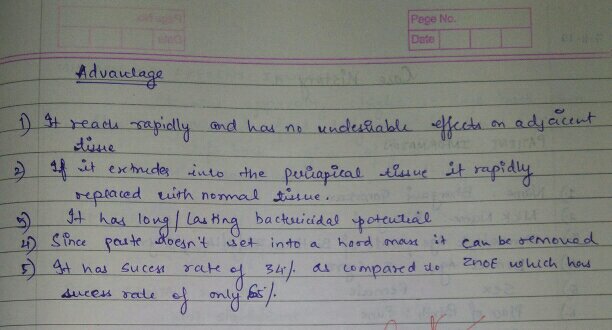 Page No.
Date
Advantage
1) It reacts rapidly and has no undesirable effects on adjacent
tissue
2) If it extrudes into the periapical tissue it rapidly
replaced with normal tissue.
3) It has long/lasting bactericidal potential
4) Since paste doesn't set into a hard mass it can be removed
5) It has sucess rate of 34% as compared to ZNOE which has
sucess rate of only 65%.